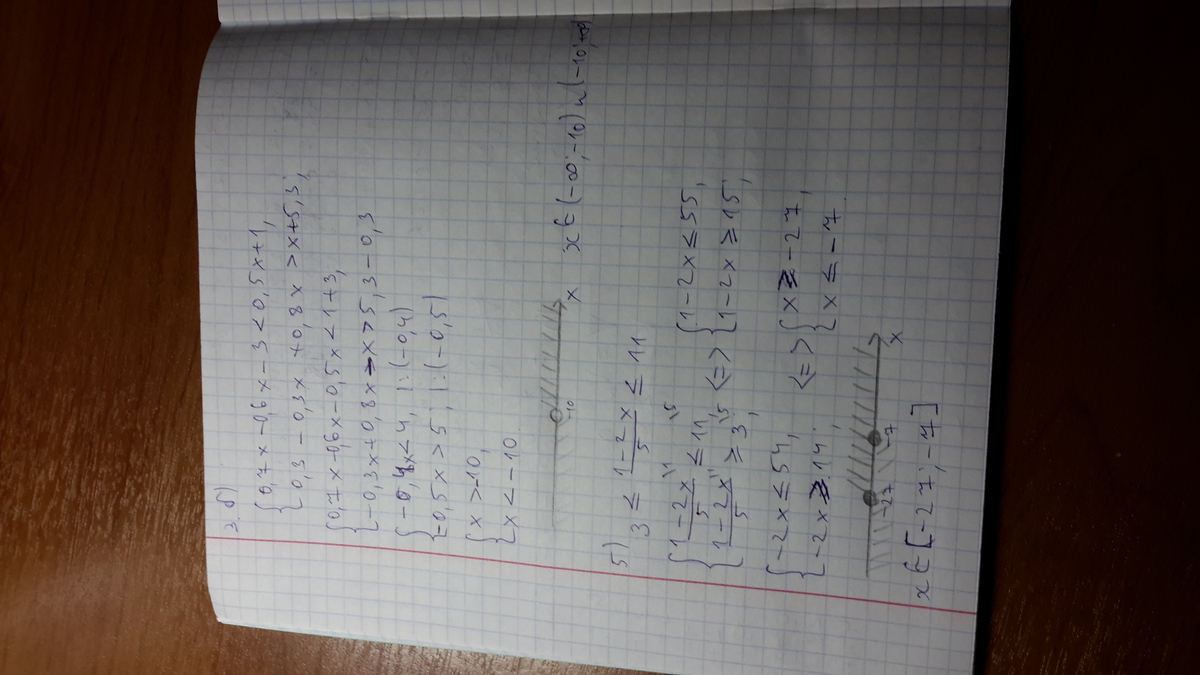 3. б)
{0,7x - 0,6x - 3 < 0,5x + 1,
{-0,3 - 0,3x + 0,8x > x + 5,3;
{0,7x - 0,6x - 0,5x < 1 + 3,
{-0,3x + 0,8x - x > 5,3 - 0,3
{-0,4x < 4, |:(-0,4)
{-0,5x > 5, |:(-0,5)
{x > -10,
{x < -10.
-10 x x ∈ (-∞; -10) ∪ (-10; +∞)
5) 3 ≤ (1-2x)/5 ≤ 11
{(1-2x)/5 \1 ≤ 11 \5, {1-2x ≤ 55,
{(1-2x)/5 \1 ≥ 3 \5; <=> {1-2x ≥ 15;
{-2x ≤ 54, {x ≥ -27,
{-2x ≥ 14; <=> {x ≤ -7.
-27 -7 x
x ∈ [-27; -7]